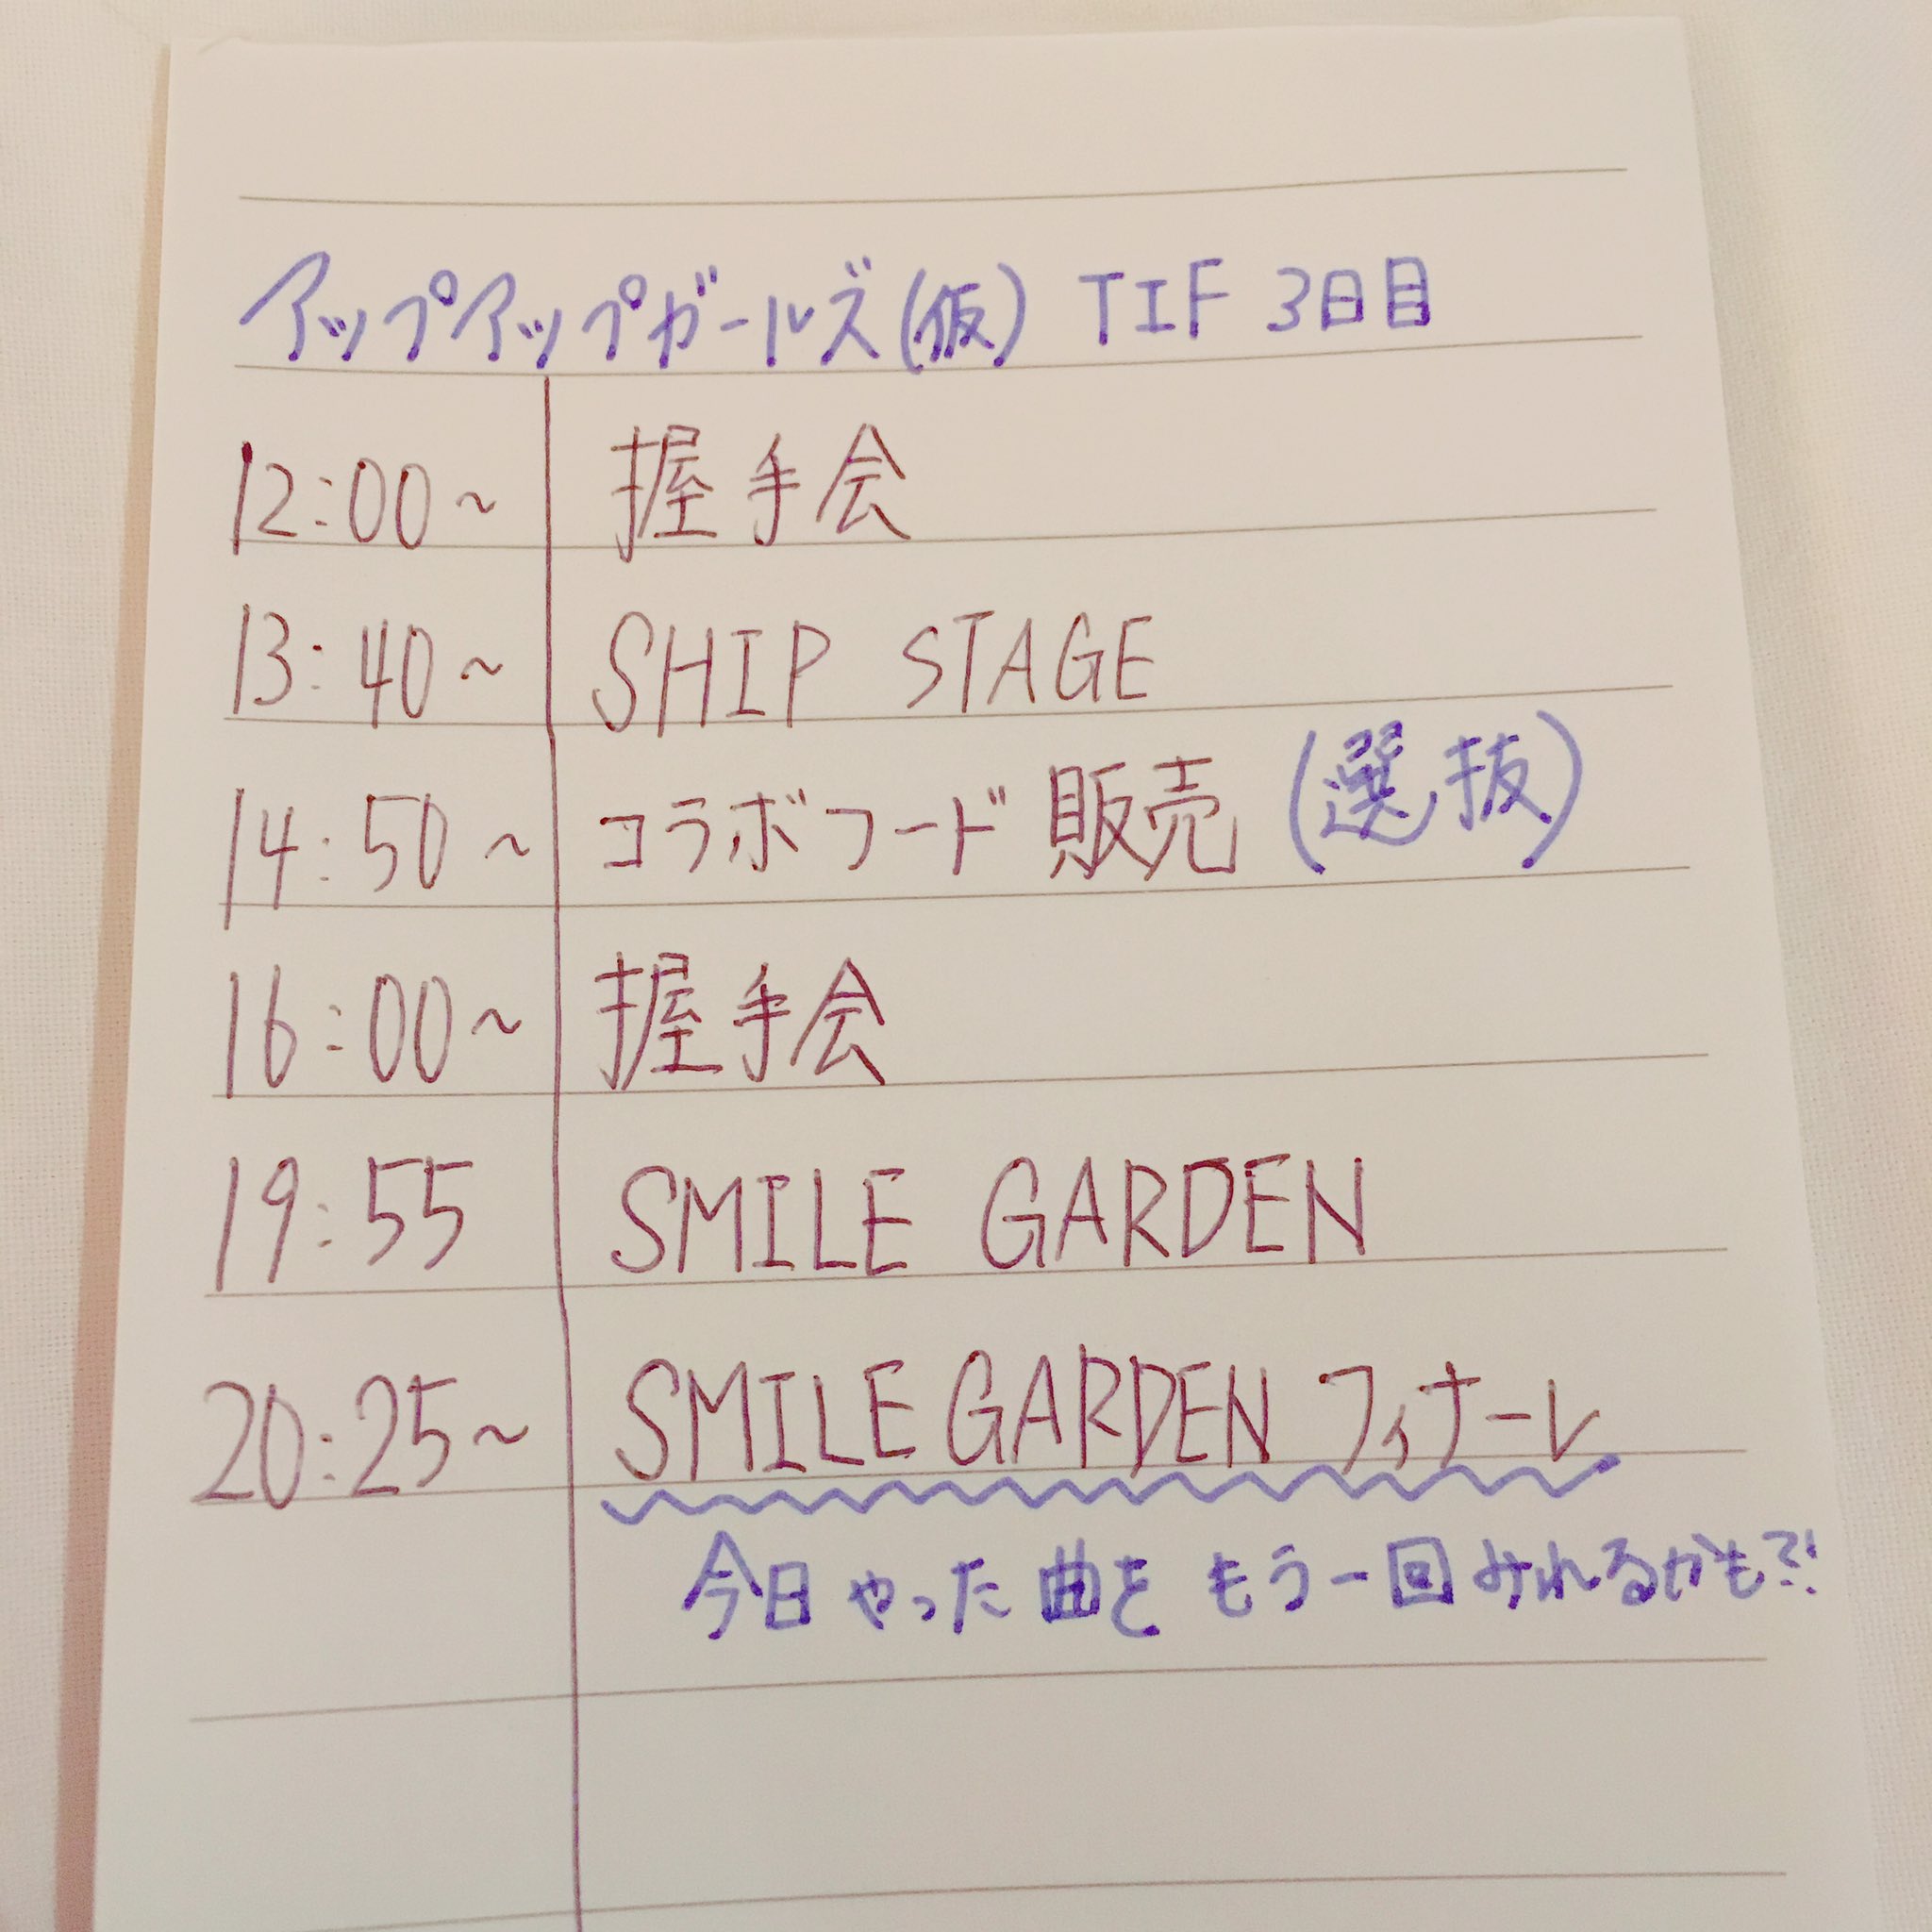 アップアップガールズ(仮) TIF 3日目
12:00~ 握手会
13:40~ SHIP STAGE
14:50~ コラボフード販売 (選抜)
16:00~ 握手会
19:55 SMILE GARDEN
20:25~ SMILE GARDEN フィナーレ
今日やった曲をもう一回みれるかも?!